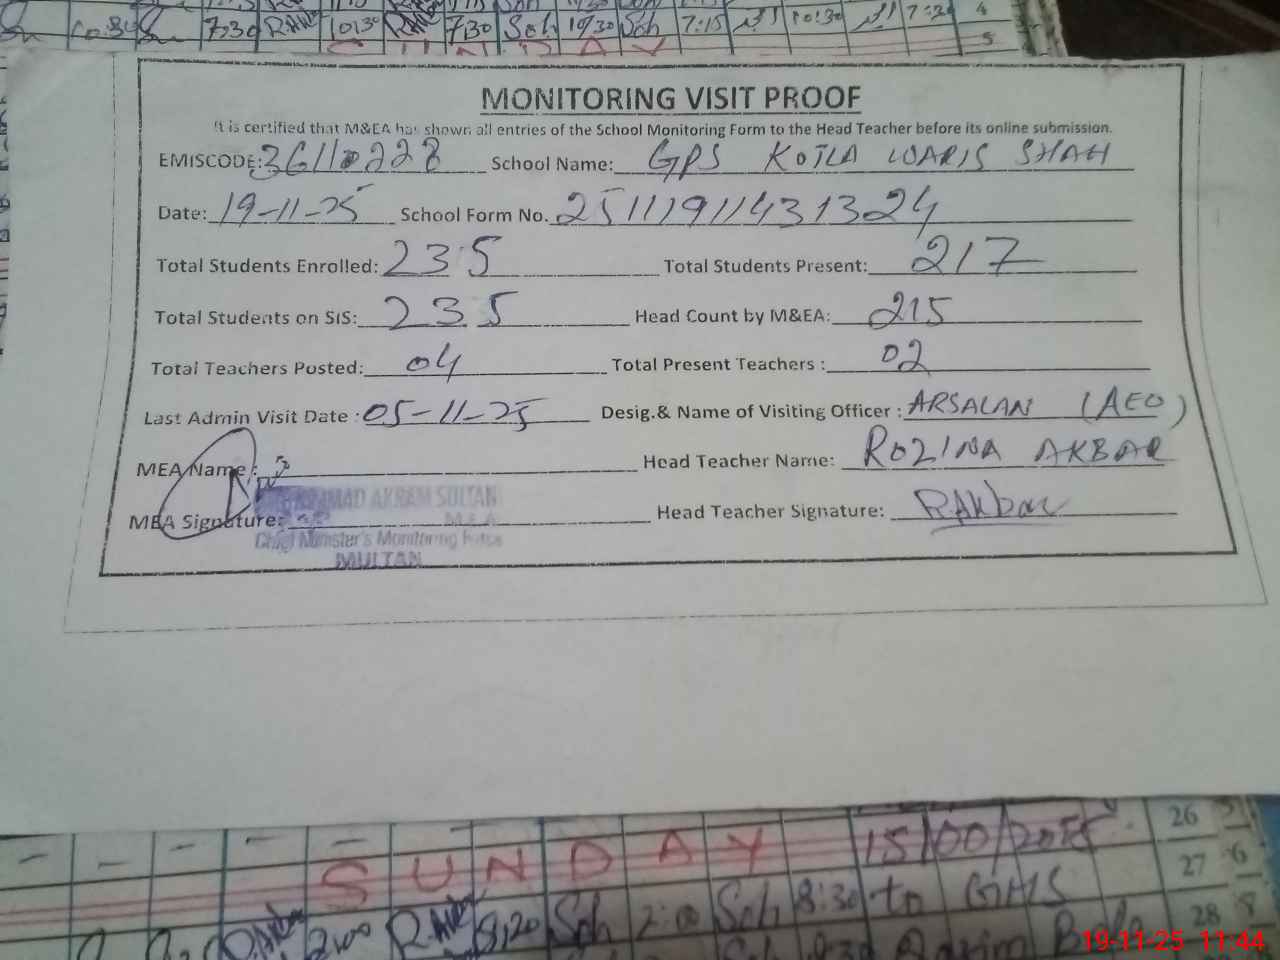 7,30 RAkbar 10,30 RAkbar 7,30 Soh 10,30 Soh 7:15 10:30 4
S U N D A Y 5
MONITORING VISIT PROOF
It is certified that M&EA has shown all entries of the School Monitoring Form to the Head Teacher before its online submission.
EMISCODE: 36110228 School Name: GPS KOTLA WARIS SHAH
Date: 19-11-25 School Form No. 25111911431324
Total Students Enrolled: 235 Total Students Present: 217
Total Students on SIS: 235 Head Count by M&EA: 215
Total Teachers Posted: 04 Total Present Teachers : 02
Last Admin Visit Date : 05-11-25 Desig.& Name of Visiting Officer : ARSALAN (AEO)
MEA Name: Head Teacher Name: ROZINA AKBAR
AKRAM SULTAN
MEA Signature: Head Teacher Signature: RAkbar
M.E.A
Chief Minister's Monitoring Force
MULTAN
26
S U N D A Y 27 6
2:00 8,20 Soh 2:00 Soh 8:30 to GHS 28 8
19-11-25 11:44